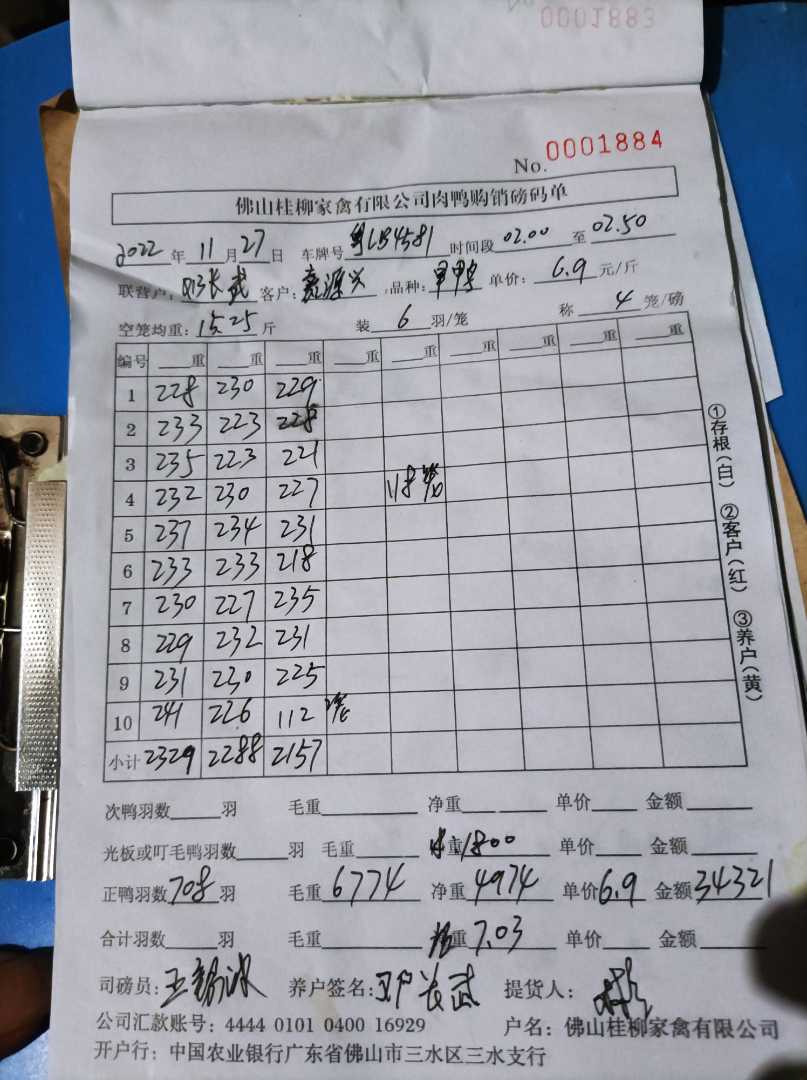 0001883
No. 0001884
佛山桂柳家禽有限公司肉鸭购销磅码单
2022年11月27日 车牌号粤LB4581 时间段02.00至02.50
联营户: 张武 客户: 源兴 品种: 单价: 6.9元/斤
空笼均重: 15.25斤 装6羽/笼 称4笼/磅
编号 重 重 重 重 重 重 重 重 重
1 228 230 229
2 233 223 228
3 235 223 221
4 232 230 227 118笼
5 237 234 231
6 233 233 218
7 230 227 235
8 229 232 231
9 231 230 225
10 241 226 112 2笼
小计 2329 2288 2157
①存根(白) ②客户(红) ③养户(黄)
次鸭羽数 羽 毛重 净重 单价 金额
光板或叮毛鸭羽数 羽 毛重 重1800 单价 金额
正鸭羽数708羽 毛重6774 净重4974 单价6.9 金额34321
合计羽数 羽 毛重 重7.03 单价 金额
司磅员: 王 养户签名: 张武 提货人:
公司汇款账号: 4444 0101 0400 16929 户名: 佛山桂柳家禽有限公司
开户行: 中国农业银行广东省佛山市三水区三水支行